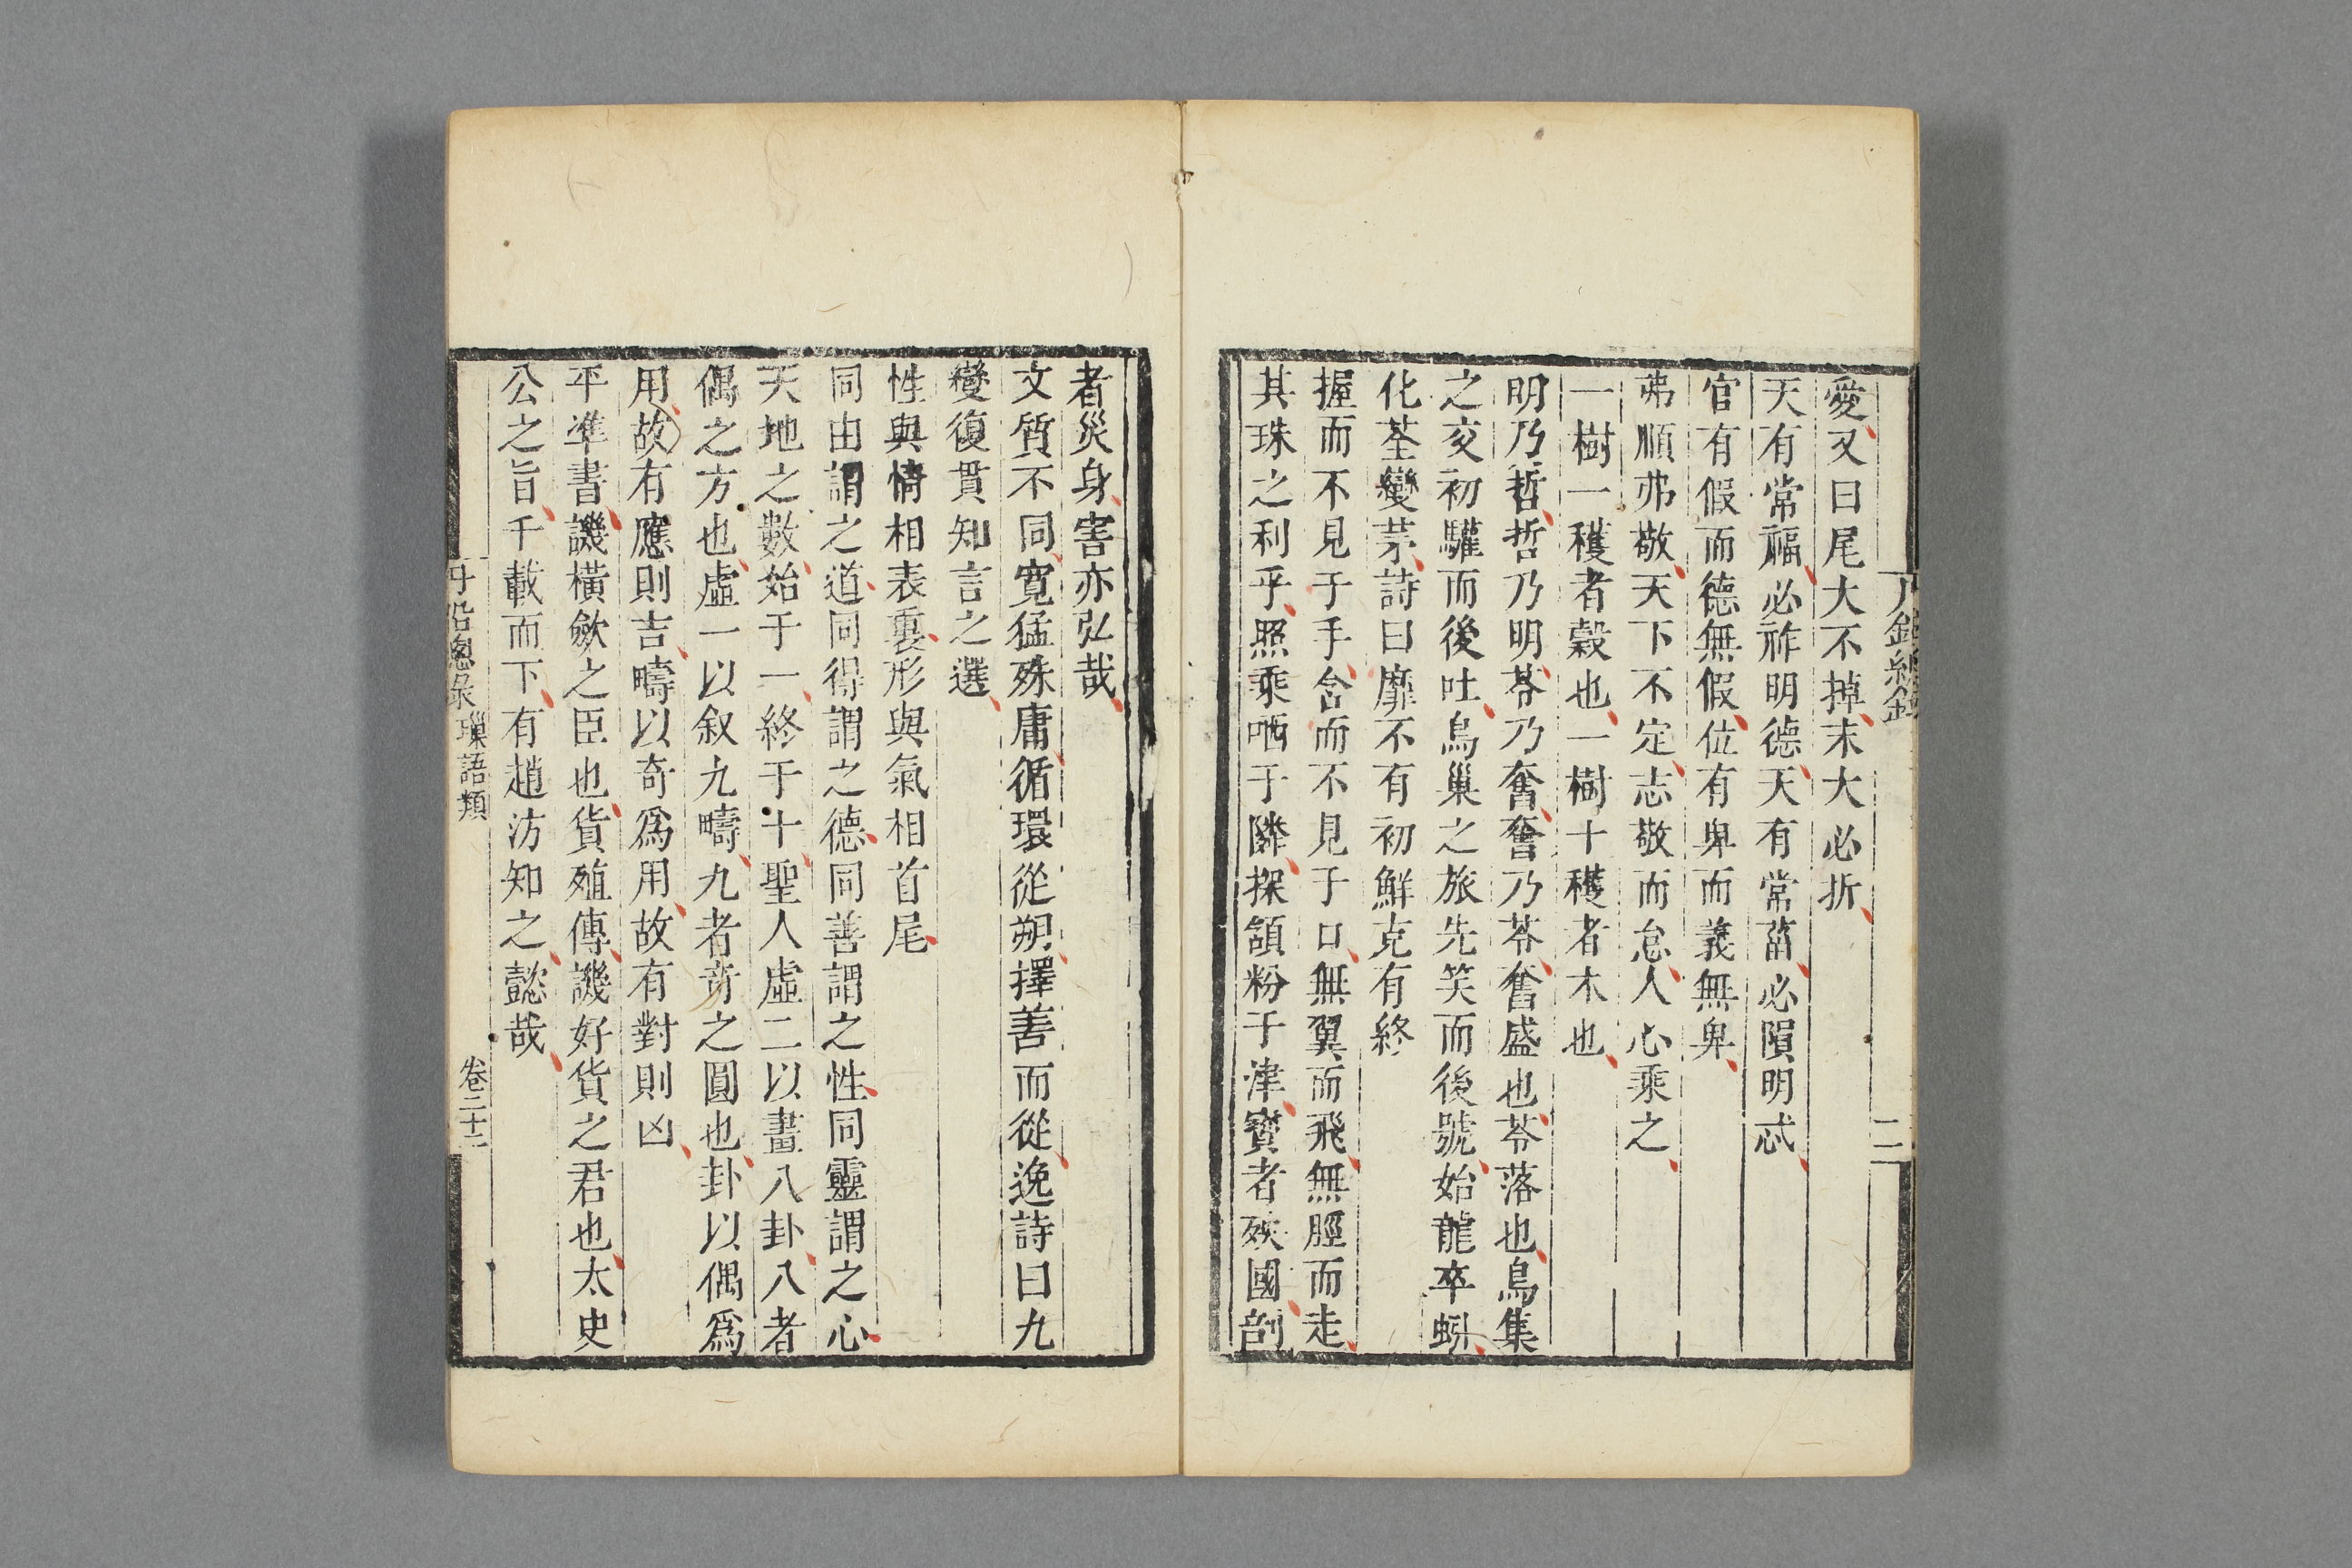 愛又曰尾大不掉末大必折
天有常福必祚明德天有常菑必隕明忒
官有假而德無假位有卑而義無卑
弗順弗敬天下不定志敬而怠人心乘之
一樹一穫者穀也一樹十穫者木也
明乃哲哲乃明苓乃奮奮乃苓奮盛也苓落也鳥集
之交初驩而後吐鳥巢之旅先笑而後號始龍卒蚓
化荃變茅詩曰靡不有初鮮克有終
握而不見于手含而不見于口無翼而飛無脛而走
其珠之利乎照乘哂于隣探頷粉于津寶者殃國剖
者災身害亦弘哉
文質不同寬猛殊庸循環從朔擇善而從逸詩曰九
變復貫知言之選
性與情相表裏形與氣相首尾
同由謂之道同得謂之德同善謂之性同靈謂之心
天地之數始于一終于十聖人虛二以畫八卦八者
偶之方也虛一以叙九疇九者奇之圓也卦以偶爲
用故有應則吉疇以奇爲用故有對則凶
平準書譏橫斂之臣也貨殖傳譏好貨之君也太史
公之旨千載而下有趙汸知之懿哉
丹沿總彔 璅語類 卷二十二
二